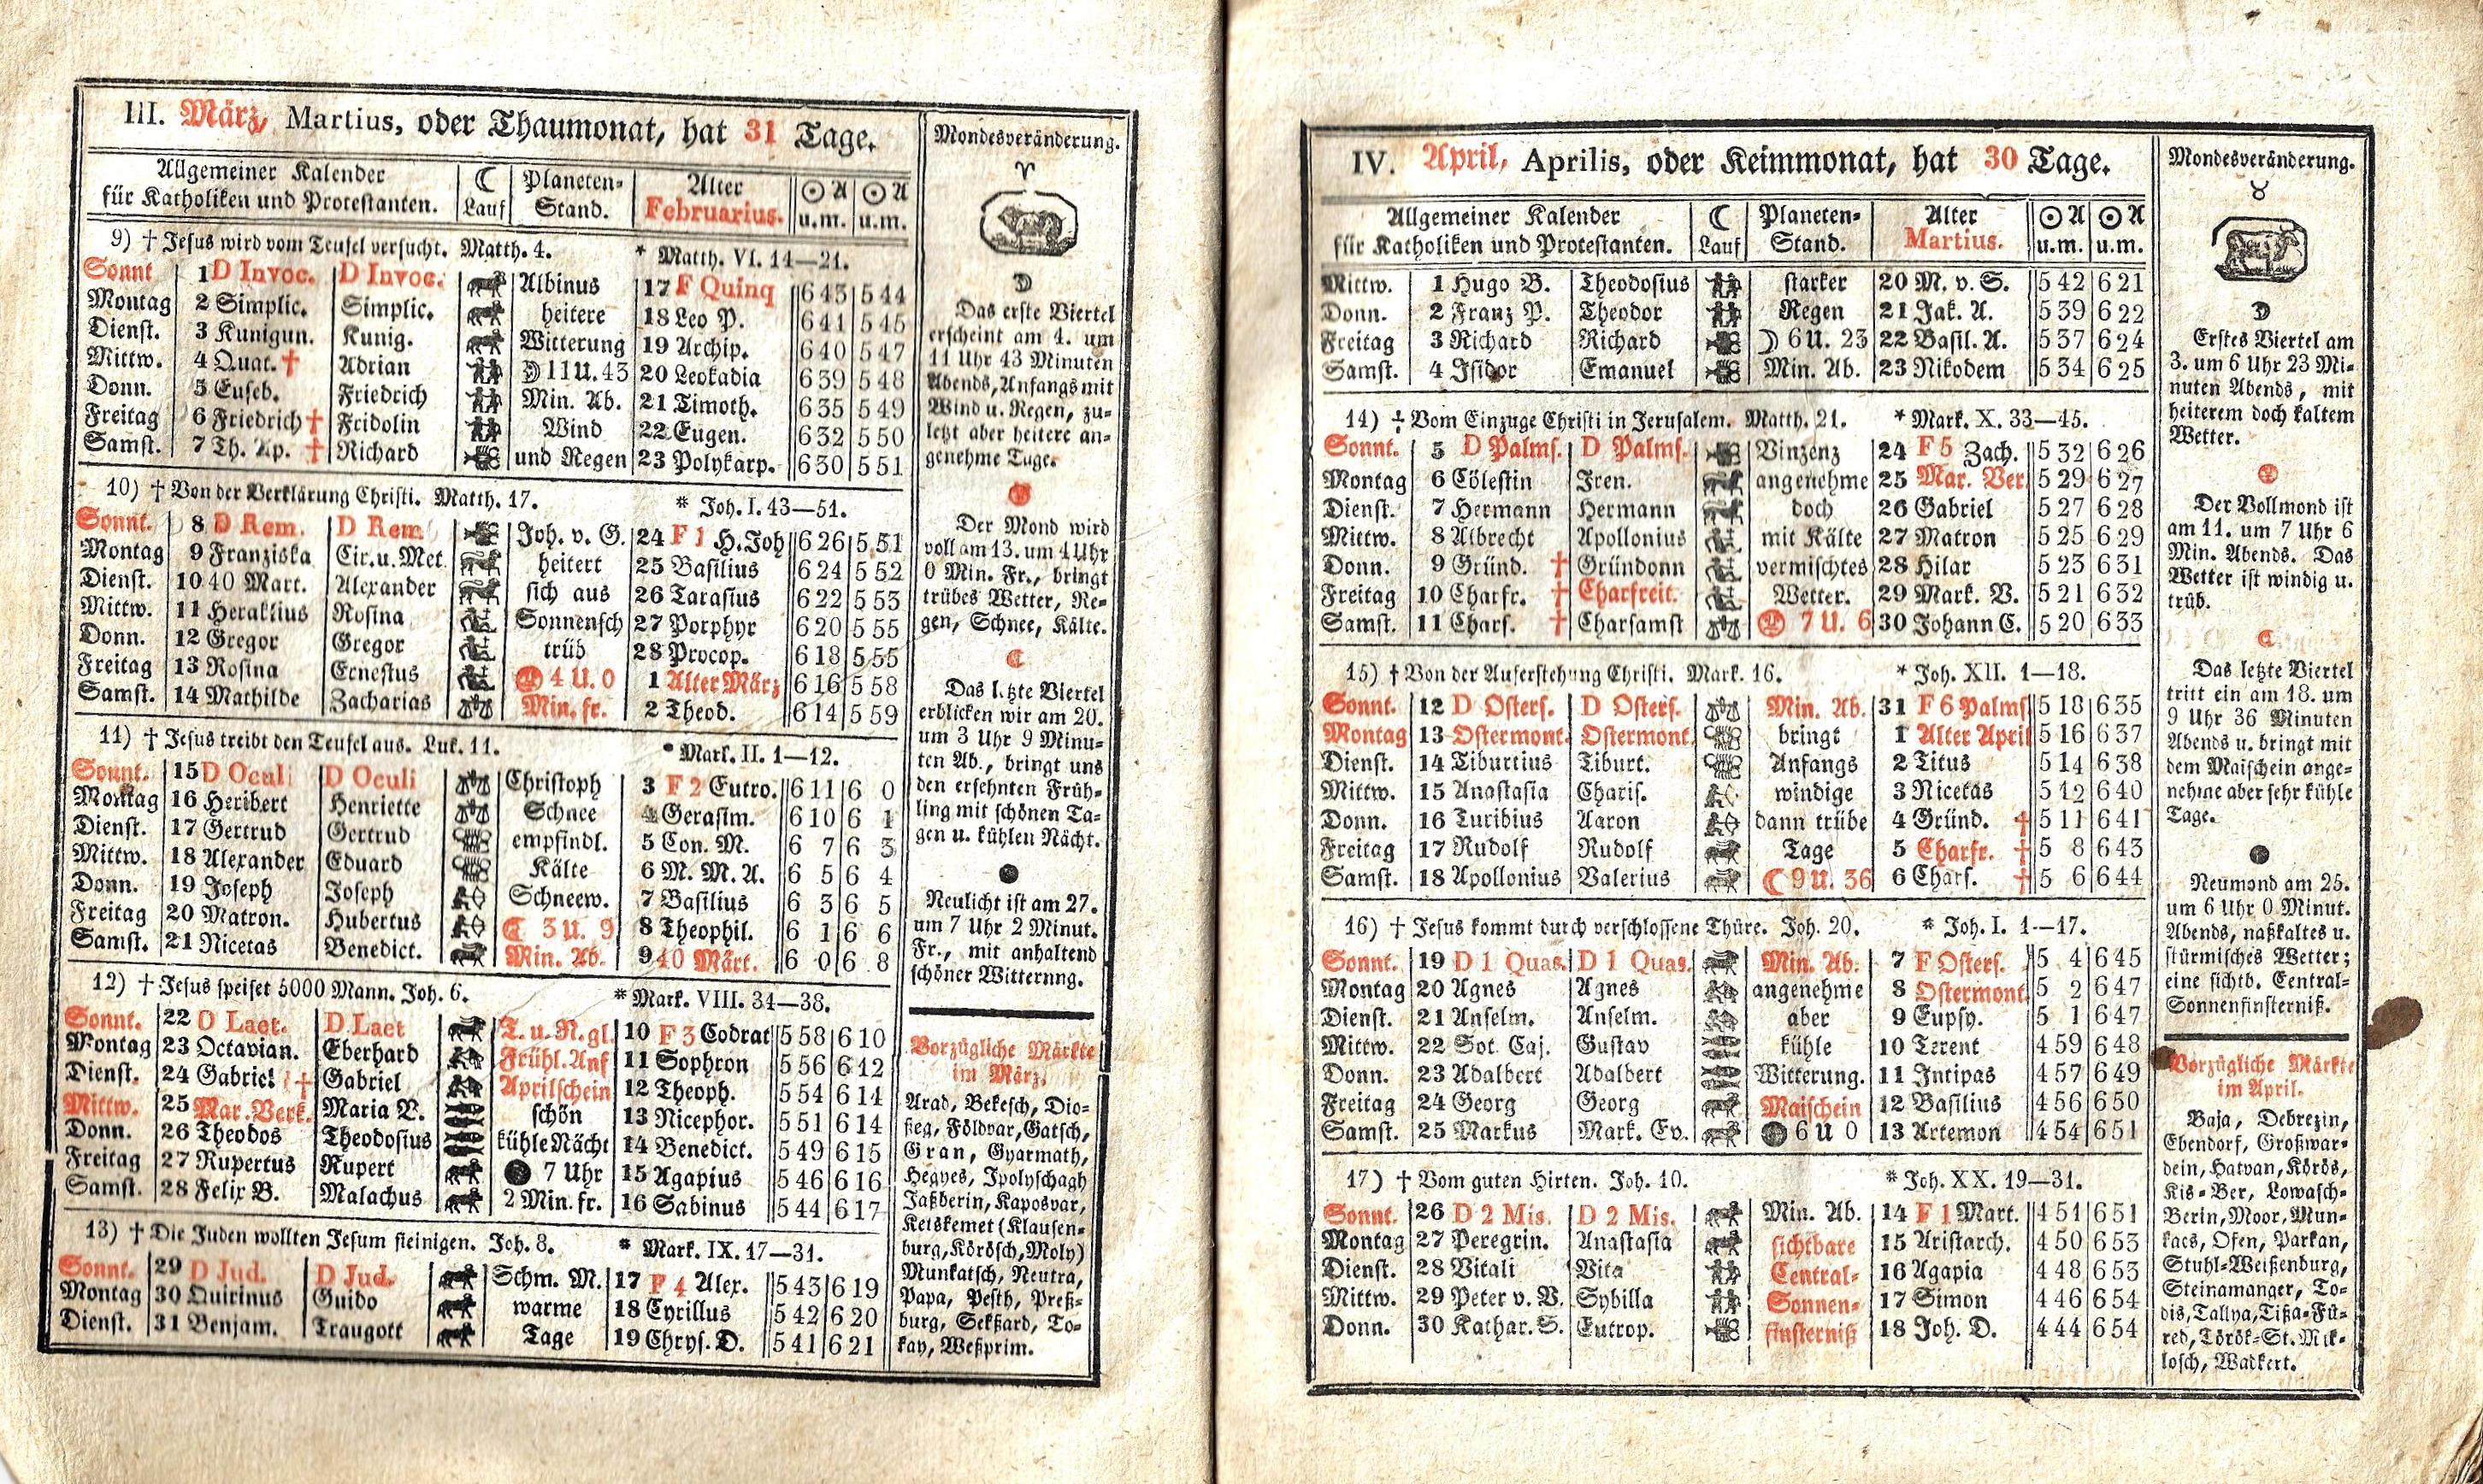 III. März, Martius, oder Thaumonat, hat 31 Tage.
Allgemeiner Kalender für Katholiken und Protestanten. | ☾ Lauf | Planeten-Stand. | Alter Februarius. | ☉ A u.m. | ☉ A u.m.
9) † Jesus wird vom Teufel versucht. Matth. 4. * Matth. VI. 14—21.
Sonnt 1 D Invoc. D Invoc. Albinus 17 F Quinq 6 43 5 44
Montag 2 Simplic. Simplic. heitere 18 Leo P. 6 41 5 45
Dienst. 3 Kunigun. Kunig. Witterung 19 Archip. 6 40 5 47
Mittw. 4 Quat. † Adrian ☽ 11 U. 43 20 Leokadia 6 39 5 48
Donn. 5 Euseb. Friedrich Min. Ab. 21 Timoth. 6 35 5 49
Freitag 6 Friedrich † Fridolin Wind 22 Eugen. 6 32 5 50
Samst. 7 Th. Ap. † Richard und Regen 23 Polykarp. 6 30 5 51
10) † Von der Verklärung Christi. Matth. 17. * Joh. I. 43—51.
Sonnt. 8 D Rem. D Rem. Joh. v. G. 24 F 1 H. Joh 6 26 5 51
Montag 9 Franziska Cir. u. Met. heitert 25 Basilius 6 24 5 52
Dienst. 10 40 Mart. Alexander sich aus 26 Tarasius 6 22 5 53
Mittw. 11 Heraklius Rosina Sonnensch 27 Porphyr 6 20 5 55
Donn. 12 Gregor Gregor trüb 28 Procop. 6 18 5 55
Freitag 13 Rosina Ernestus 4 U. 0 1 Alter März 6 16 5 58
Samst. 14 Mathilde Zacharias Min. fr. 2 Theod. 6 14 5 59
11) † Jesus treibt den Teufel aus. Luk. 11. * Mark. II. 1—12.
Sonnt. 15 D Oculi D Oculi Christoph 3 F 2 Eutro. 6 11 6 0
Montag 16 Heribert Henriette Schnee 4 Gerasim. 6 10 6 1
Dienst. 17 Gertrud Gertrud empfindl. 5 Con. M. 6 7 6 3
Mittw. 18 Alexander Eduard Kälte 6 M. M. A. 6 5 6 4
Donn. 19 Joseph Joseph Schneew. 7 Basilius 6 3 6 5
Freitag 20 Matron. Hubertus ☾ 3 U. 9 8 Theophil. 6 1 6 6
Samst. 21 Nicetas Benedict. Min. Ab. 9 40 Märt. 6 0 6 8
12) † Jesus speiset 5000 Mann. Joh. 6. * Mark. VIII. 34—38.
Sonnt. 22 D Laet. D Laet T. u. N. gl. 10 F 3 Codrat 5 58 6 10
Montag 23 Octavian. Eberhard Frühl. Anf 11 Sophron 5 56 6 12
Dienst. 24 Gabriel † Gabriel Aprilschein 12 Theoph. 5 54 6 14
Mittw. 25 Mar. Verk. Maria V. schön 13 Nicephor. 5 51 6 14
Donn. 26 Theodos Theodosius kühle Nächt 14 Benedict. 5 49 6 15
Freitag 27 Rupertus Rupert ● 7 Uhr 15 Agapius 5 46 6 16
Samst. 28 Felix B. Malachus 2 Min. fr. 16 Sabinus 5 44 6 17
13) † Die Juden wollten Jesum steinigen. Joh. 8. * Mark. IX. 17—31.
Sonnt. 29 D Jud. D Jud. Schm. M. 17 F 4 Alex. 5 43 6 19
Montag 30 Quirinus Guido warme 18 Cyrillus 5 42 6 20
Dienst. 31 Benjam. Traugott Tage 19 Chrys. D. 5 41 6 21
Mondesveränderung.
♈
☽
Das erste Viertel
erscheint am 4. um
11 Uhr 43 Minuten
Abends, Anfangs mit
Wind u. Regen, zu-
letzt aber heitere an-
genehme Tage.
Der Mond wird
voll am 13. um 4 Uhr
0 Min. Fr., bringt
trübes Wetter, Re-
gen, Schnee, Kälte.
☾
Das letzte Viertel
erblicken wir am 20.
um 3 Uhr 9 Minu-
ten Ab., bringt uns
den ersehnten Früh-
ling mit schönen Ta-
gen u. kühlen Nächt.
●
Neulicht ist am 27.
um 7 Uhr 2 Minut.
Fr., mit anhaltend
schöner Witternng.
Vorzügliche Märkte
im März.
Arad, Bekesch, Dio-
ßeg, Földvar, Gatsch,
Gran, Gyarmath,
Hegyes, Ipolyschagh
Jaßberin, Kaposvar,
Ketskemet (Klausen-
burg, Körösch, Moly)
Munkatsch, Neutra,
Papa, Pesth, Preß-
burg, Sekßard, To-
kay, Weßprim.
IV. April, Aprilis, oder Keimmonat, hat 30 Tage.
Allgemeiner Kalender für Katholiken und Protestanten. | ☾ Lauf | Planeten-Stand. | Alter Martius. | ☉ A u.m. | ☉ A u.m.
Mittw. 1 Hugo B. Theodosius starker 20 M. v. S. 5 42 6 21
Donn. 2 Franz P. Theodor Regen 21 Jak. A. 5 39 6 22
Freitag 3 Richard Richard ☽ 6 U. 23 22 Basil. A. 5 37 6 24
Samst. 4 Isidor Emanuel Min. Ab. 23 Nikodem 5 34 6 25
14) † Vom Einzuge Christi in Jerusalem. Matth. 21. * Mark. X. 33—45.
Sonnt. 5 D Palms. D Palms. Vinzenz 24 F 5 Zach. 5 32 6 26
Montag 6 Cölestin Iren. angenehme 25 Mar. Ver. 5 29 6 27
Dienst. 7 Hermann Hermann doch 26 Gabriel 5 27 6 28
Mittw. 8 Albrecht Apollonius mit Kälte 27 Matron 5 25 6 29
Donn. 9 Gründ. † Gründonn vermischtes 28 Hilar 5 23 6 31
Freitag 10 Charfr. † Charfreit. Wetter. 29 Mark. B. 5 21 6 32
Samst. 11 Chars. † Charsamst 7 U. 6 30 Johann C. 5 20 6 33
15) † Von der Auferstehung Christi. Mark. 16. * Joh. XII. 1—18.
Sonnt. 12 D Osters. D Osters. Min. Ab. 31 F 6 Palms 5 18 6 35
Montag 13 Ostermont. Ostermont. bringt 1 Alter April 5 16 6 37
Dienst. 14 Tiburtius Tiburt. Anfangs 2 Titus 5 14 6 38
Mittw. 15 Anastasia Charis. windige 3 Nicetas 5 12 6 40
Donn. 16 Turibius Aaron dann trübe 4 Gründ. † 5 11 6 41
Freitag 17 Rudolf Rudolf Tage 5 Charfr. † 5 8 6 43
Samst. 18 Apollonius Valerius ☾ 9 U. 36 6 Chars. † 5 6 6 44
16) † Jesus kommt durch verschlossene Thüre. Joh. 20. * Joh. I. 1—17.
Sonnt. 19 D 1 Quas. D 1 Quas. Min. Ab. 7 F Osters. 5 4 6 45
Montag 20 Agnes Agnes angenehme 8 Ostermont. 5 2 6 47
Dienst. 21 Anselm. Anselm. aber 9 Eupsy. 5 1 6 47
Mittw. 22 Sot. Caj. Gustav kühle 10 Terent 4 59 6 48
Donn. 23 Adalbert Adalbert Witterung. 11 Intipas 4 57 6 49
Freitag 24 Georg Georg Maischein 12 Basilius 4 56 6 50
Samst. 25 Markus Mark. Ev. ● 6 U 0 13 Artemon 4 54 6 51
17) † Vom guten Hirten. Joh. 10. * Joh. XX. 19—31.
Sonnt. 26 D 2 Mis. D 2 Mis. Min. Ab. 14 F 1 Mart. 4 51 6 51
Montag 27 Peregrin. Anastasia sichtbare 15 Aristarch. 4 50 6 53
Dienst. 28 Vitali Vita Central- 16 Agapia 4 48 6 53
Mittw. 29 Peter v. V. Sybilla Sonnen- 17 Simon 4 46 6 54
Donn. 30 Kathar. S. Eutrop. finsterniß 18 Joh. D. 4 44 6 54
Mondesveränderung.
♉
☽
Erstes Viertel am
3. um 6 Uhr 23 Mi-
nuten Abends, mit
heiterem doch kaltem
Wetter.
Der Vollmond ist
am 11. um 7 Uhr 6
Min. Abends. Das
Wetter ist windig u.
trüb.
☾
Das letzte Viertel
tritt ein am 18. um
9 Uhr 36 Minuten
Abends u. bringt mit
dem Maischein ange-
nehme aber sehr kühle
Tage.
●
Neumond am 25.
um 6 Uhr 0 Minut.
Abends, naßkaltes u.
stürmisches Wetter;
eine sichtb. Central-
Sonnenfinsterniß.
Vorzügliche Märkte
im April.
Baja, Debrezin,
Ebendorf, Großwar-
dein, Hatvan, Körös,
Kis-Ber, Lowasch-
Berin, Moor, Mun-
kacs, Ofen, Parkan,
Stuhl-Weißenburg,
Steinamanger, To-
dis, Tallya, Tißa-Fü-
red, Török-St. Mik-
losch, Wadkert.